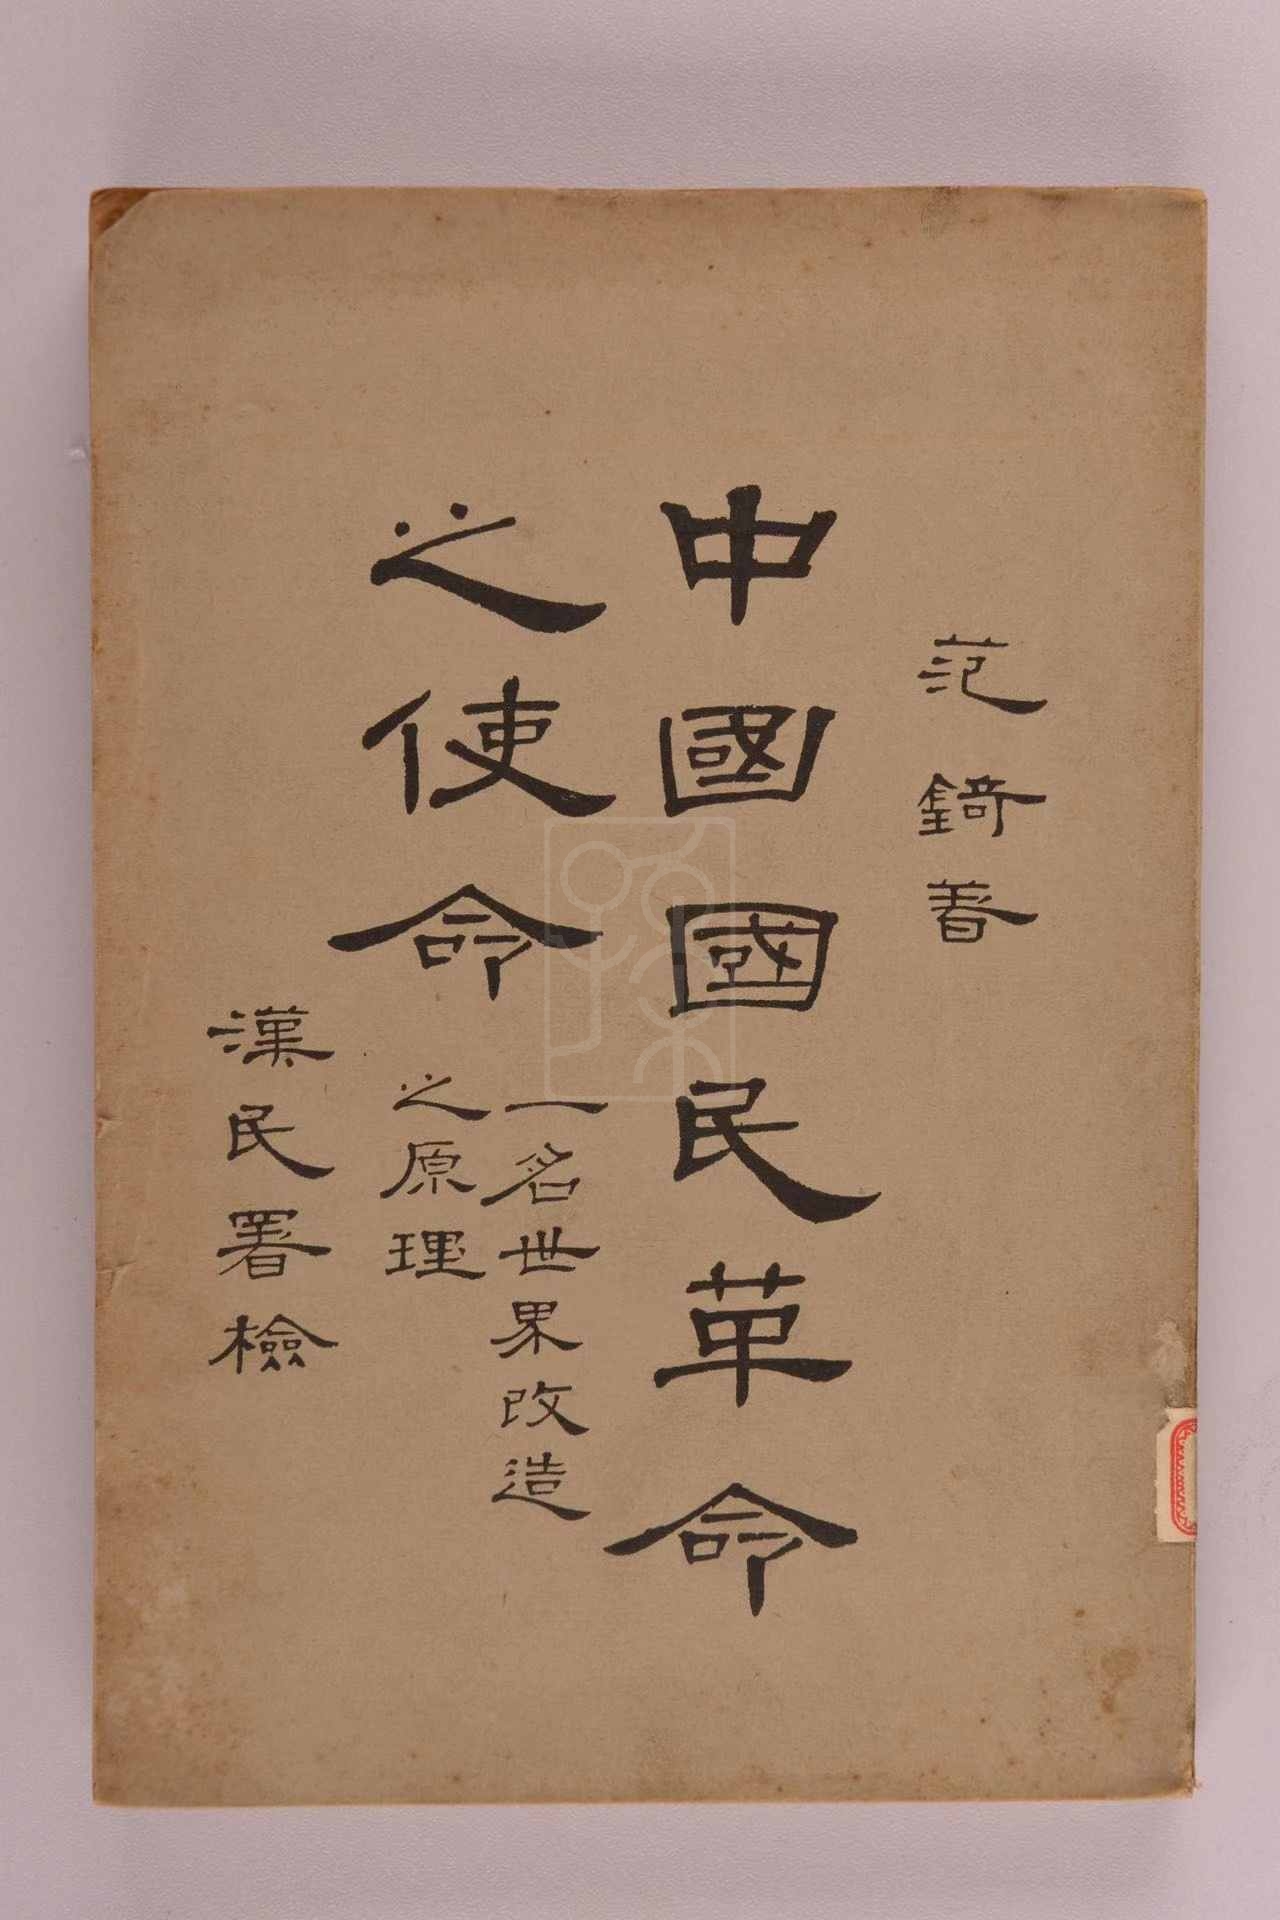 范錡著
中國國民革命
之使命
一名世界改造
之原理
漢民署檢